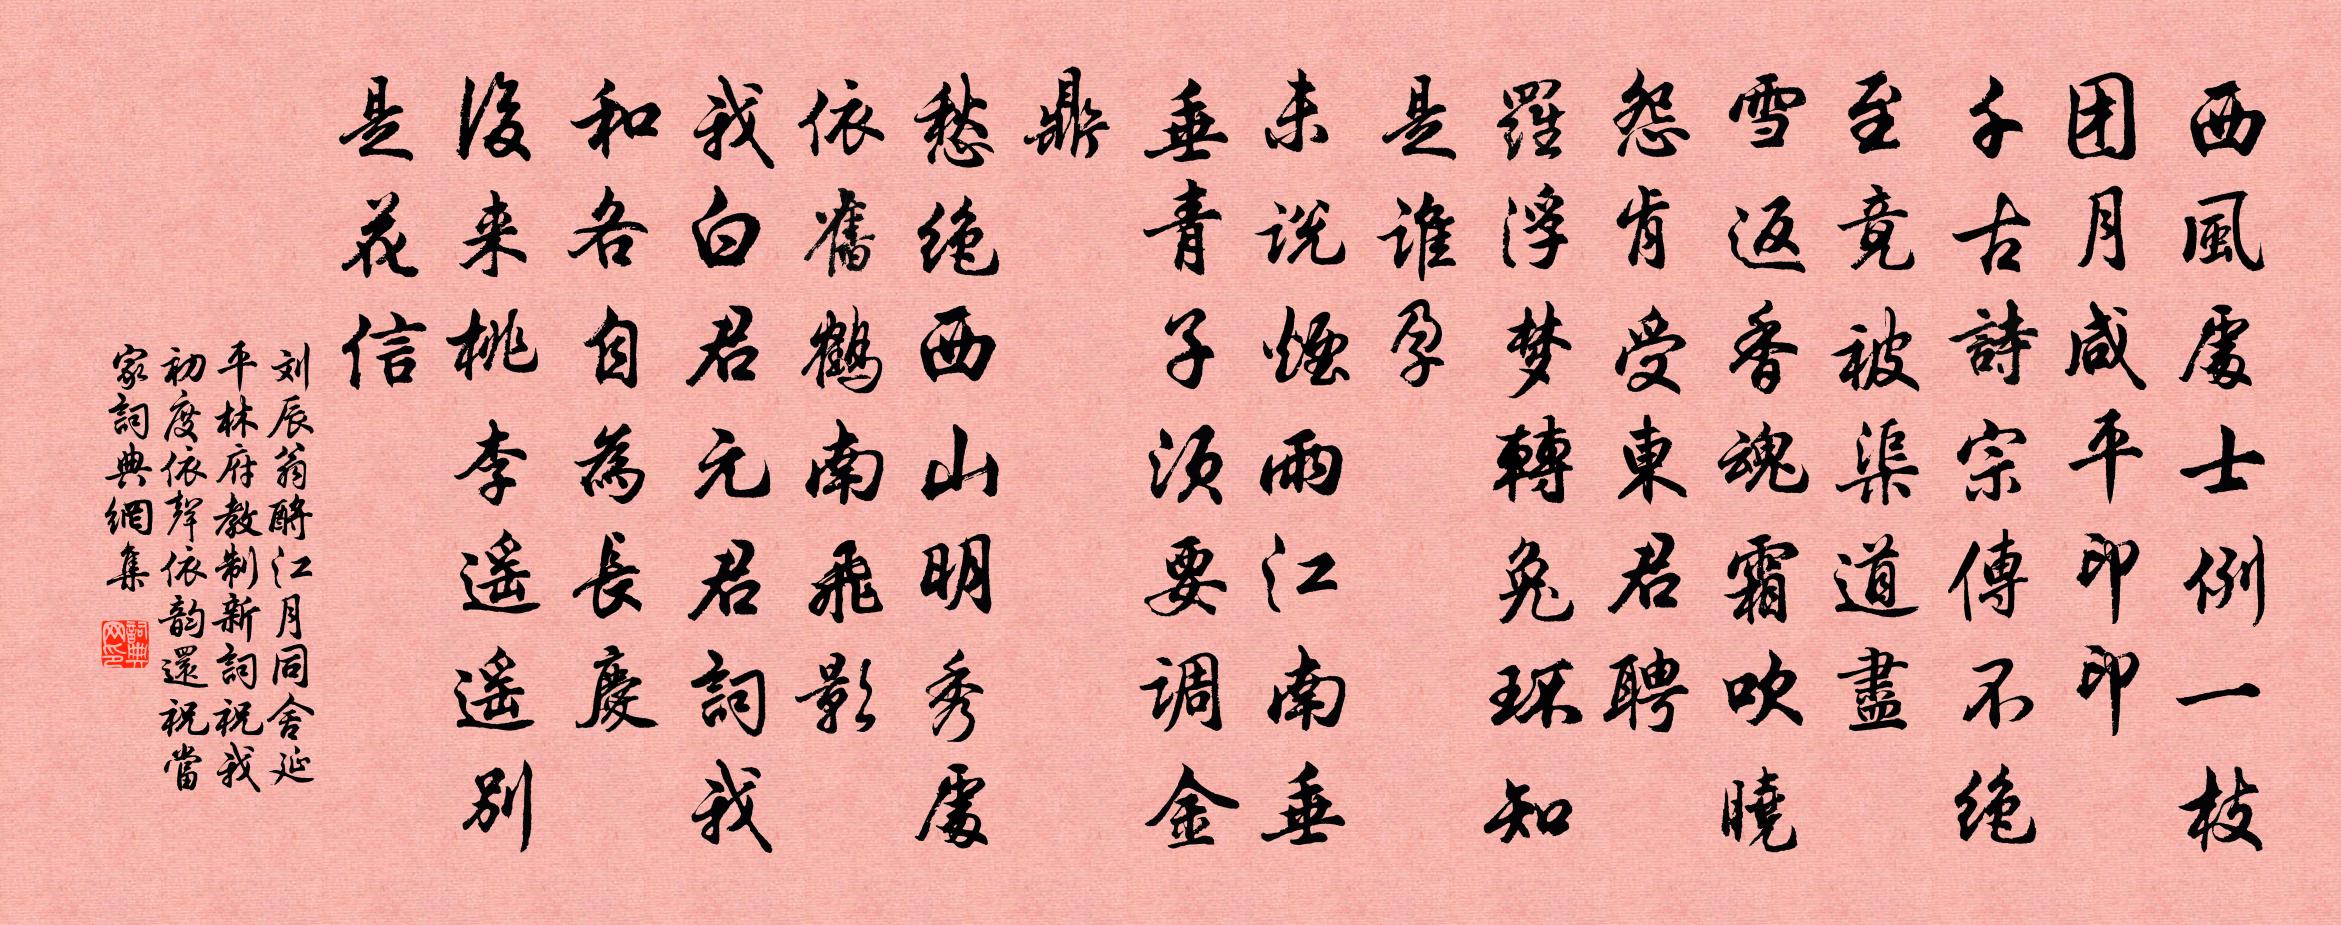 西風處士例一枝
团月咸平印印
千古詩宗傳不绝
至竟被渠道盡
雪返香魂霜吹曉
怨肯受東君聘
羅浮梦轉兔环知
是誰孕
未说煙雨江南垂
垂青子须要调金
鼎
愁绝西山明秀處
依舊鶴南飛影
我白君元君詞我
和各自為長慶
後来桃李遥遥别
是花信
刘辰翁酹江月同舍延
平林府教制新詞祝我
初度依聲依韵還祝當
家詞典網集
詞典网印